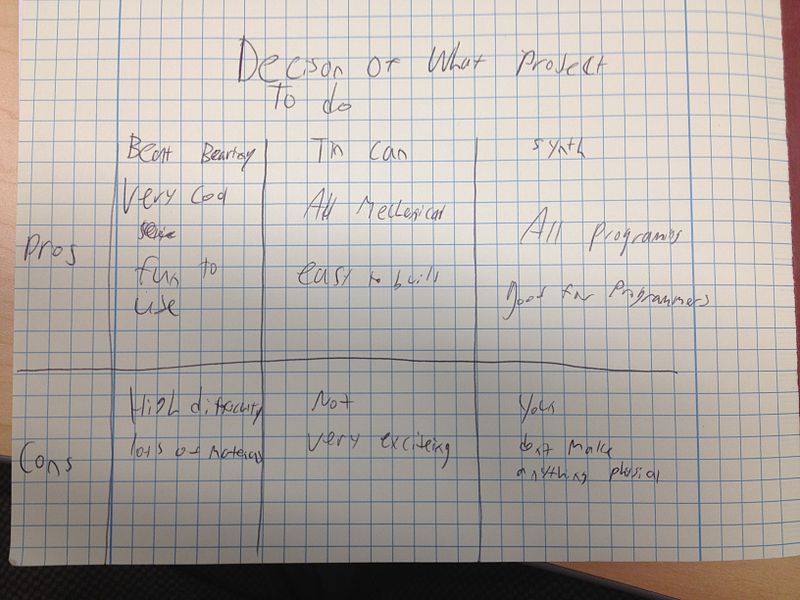 Decison of What Project
To do
Beat Bearing
Tin can
Synth
Pros
Very Cool
fun to
use
All Mechanical
easy to build
All programing
good for Programmers
Cons
High difficulty
lots of materials
Not
very exciteing
You
dont make
anything phisical